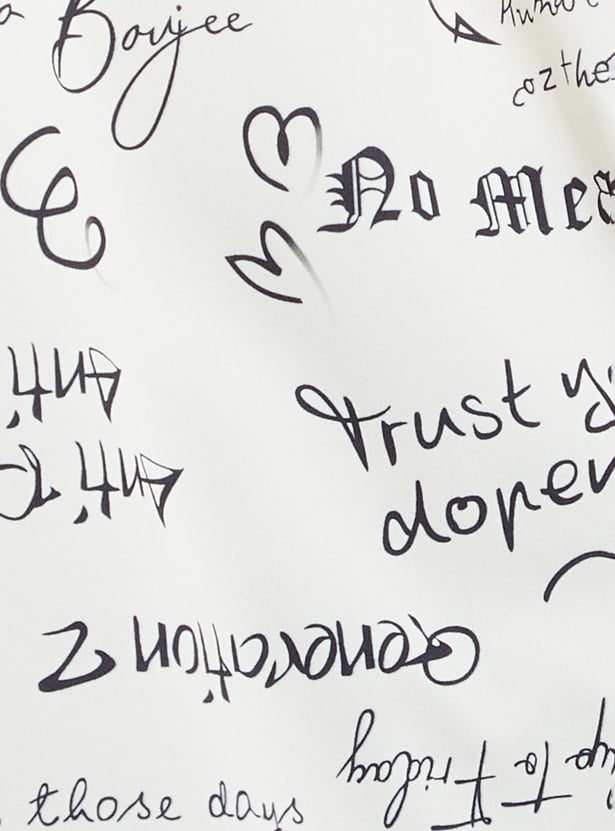 Boujee
cozthe
No Mea
Anti
Anti
Trust y
dopen
Generation Z
up to Friday
those days